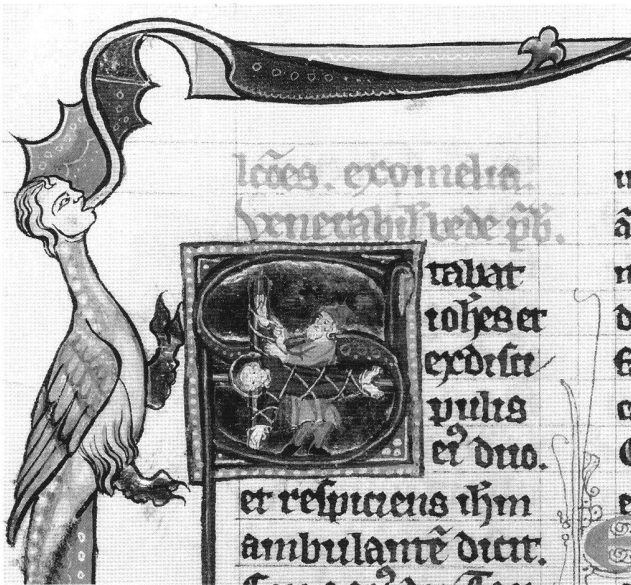 lc̃oes. ex omelia.
venerabil' bede p̃b.
Stabat
ioh̃es et
ex disci
pulis
eiꝰ duo.
et respiciens ih̃m
ambulantẽ dicit.